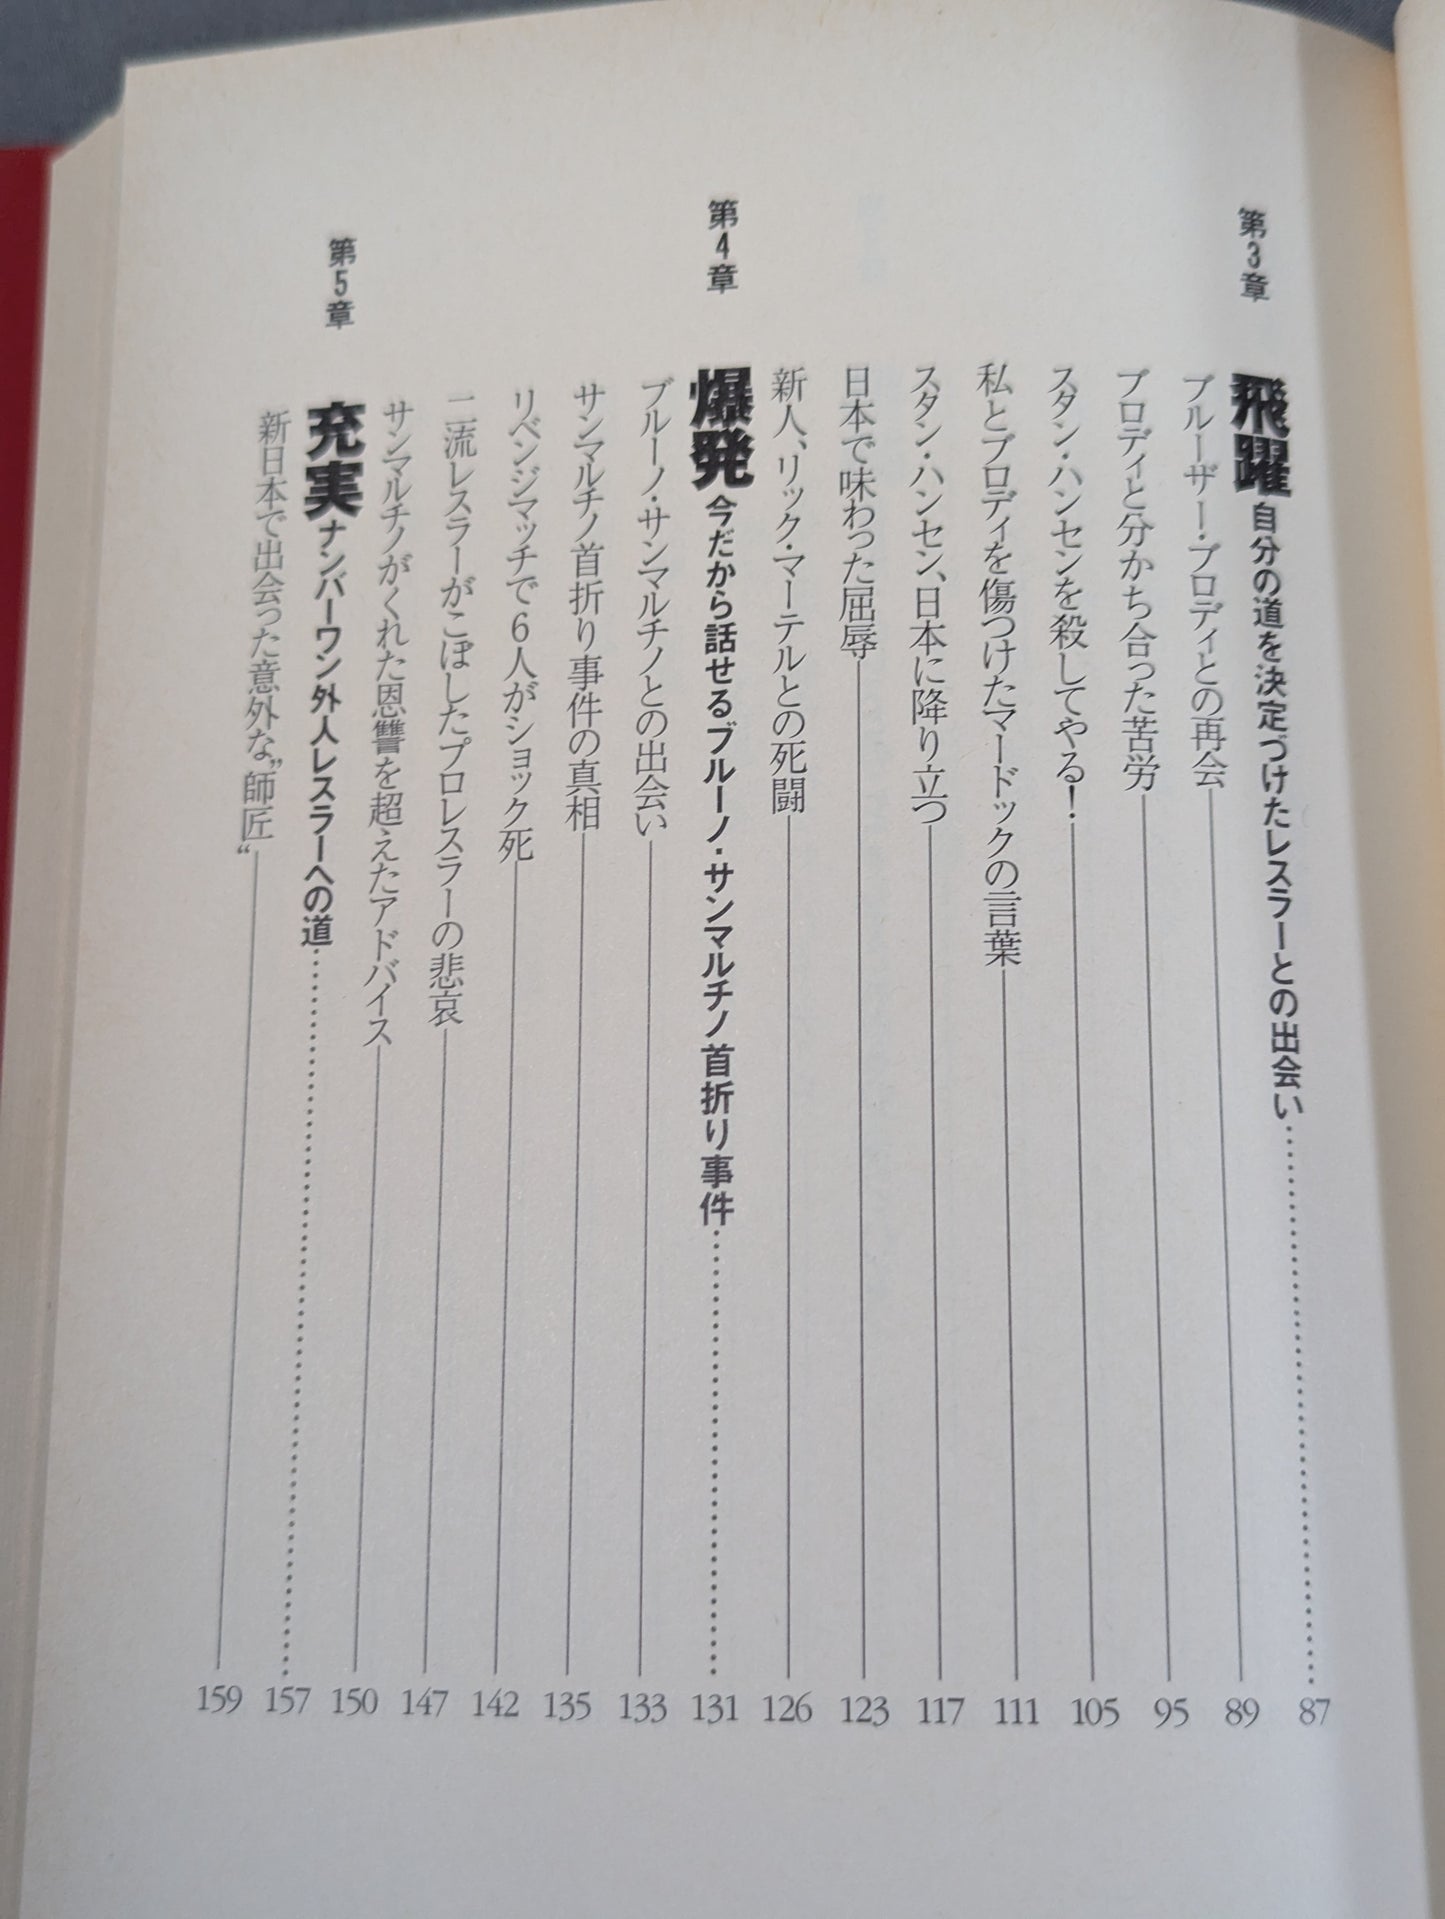 第3章 飛躍 自分の道を決定づけたレスラーとの出会い 87
ブルーザー・ブロディとの再会 89
ブロディと分かち合った苦労 95
スタン・ハンセンを殺してやる！ 105
私とブロディを傷つけたマードックの言葉 111
スタン・ハンセン、日本に降り立つ 117
日本で味わった屈辱 123
新人、リック・マーテルとの死闘 126
第4章 爆発 今だから話せるブルーノ・サンマルチノ首折り事件 131
ブルーノ・サンマルチノとの出会い 133
サンマルチノ首折り事件の真相 135
リベンジマッチで6人がショック死 142
二流レスラーがこぼしたプロレスラーの悲哀 147
サンマルチノがくれた恩讐を超えたアドバイス 150
第5章 充実 ナンバーワン外人レスラーへの道 157
新日本で出会った意外な〝師匠〟 159